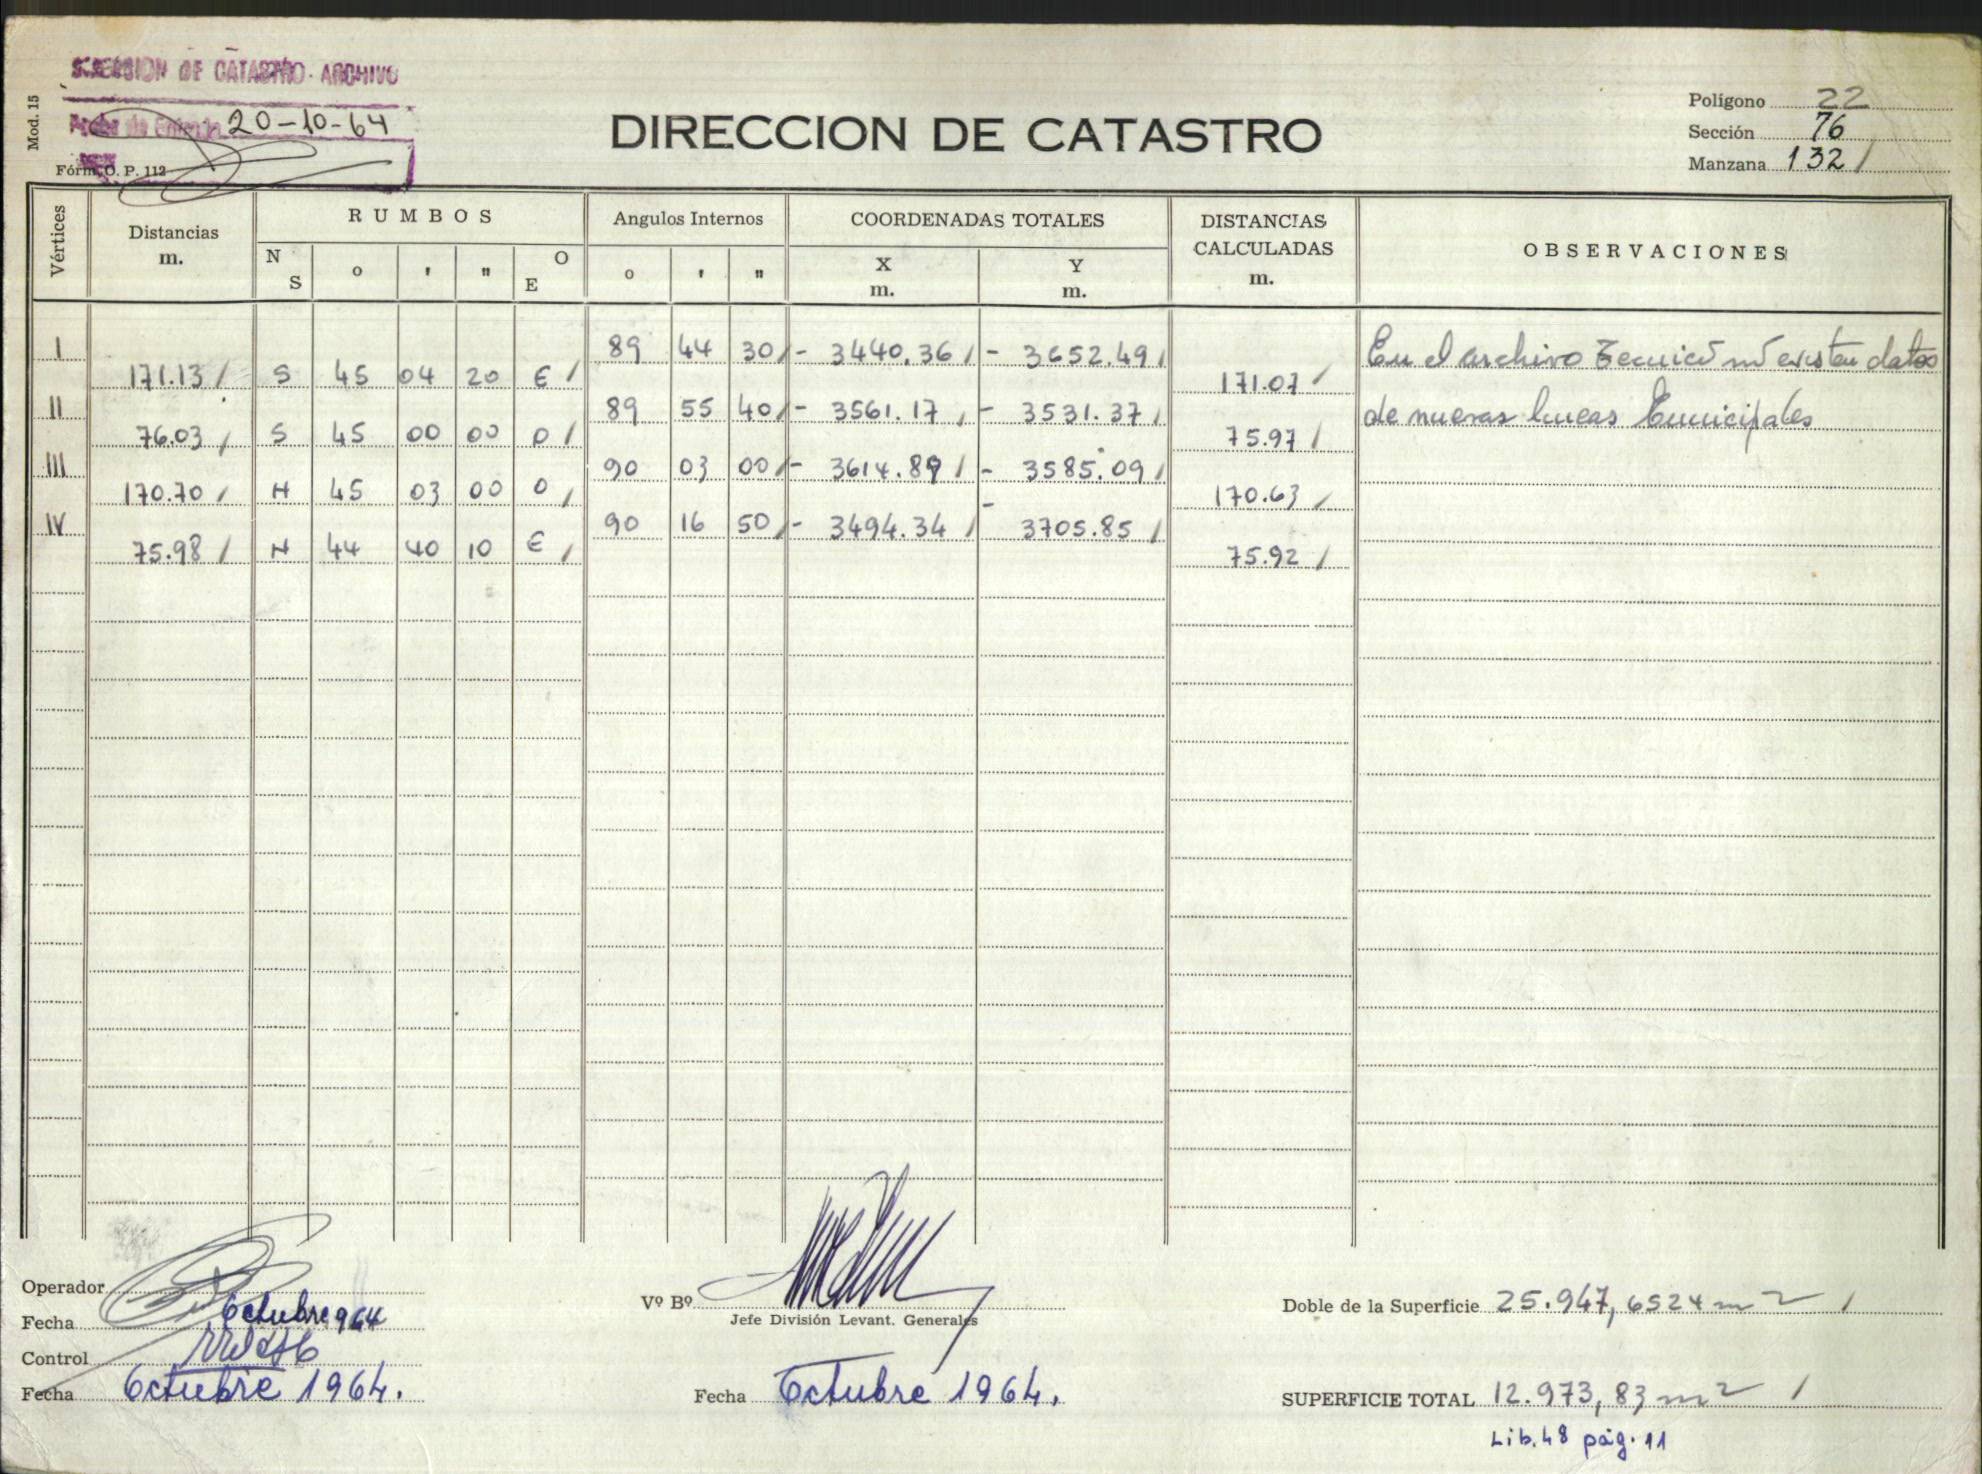 SECCION DE CATASTRO - ARCHIVO
Fecha de Entrada 20-10-64
Mod. 15
Fórm. O. P. 112
DIRECCION DE CATASTRO
Polígono 22
Sección 76
Manzana 132 /
Vértices Distancias m. RUMBOS Angulos Internos COORDENADAS TOTALES DISTANCIAS CALCULADAS m. OBSERVACIONES
N S o ' " O E o ' " X m. Y m.
I 89 44 30 / - 3440.36 / - 3652.49 /
171.13 / S 45 04 20 E / 171.07 /
II 89 55 40 / - 3561.17 / - 3531.37 /
76.03 / S 45 00 00 O / 75.97 /
III 90 03 00 / - 3614.89 / - 3585.09 /
170.70 / N 45 03 00 O / 170.63 /
IV 90 16 50 / - 3494.34 / - 3705.85 /
75.98 / N 44 40 10 E / 75.92 /
En el archivo Tecnico no existen datos
de nuevas lineas Municipales
Operador
Fecha Octubre 964
Control
Fecha Octubre 1964.
Vº Bº
Jefe División Levant. Generales
Fecha Octubre 1964.
Doble de la Superficie 25.947,6524 m2 /
SUPERFICIE TOTAL 12.973,83 m2 /
Lib. 48 pág. 11